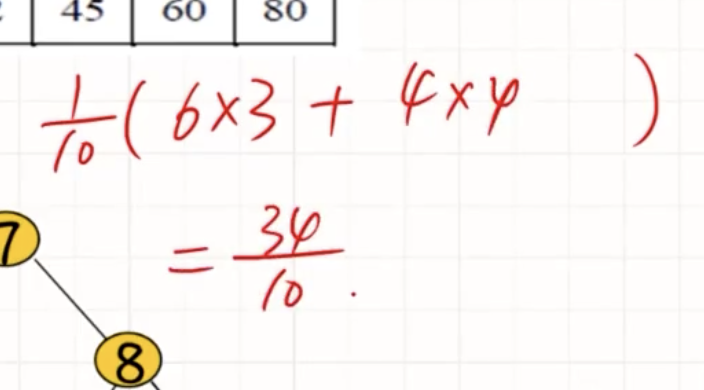 45 60 80
1/10 ( 6×3 + 4×4 )
= 34/10 .
7
8